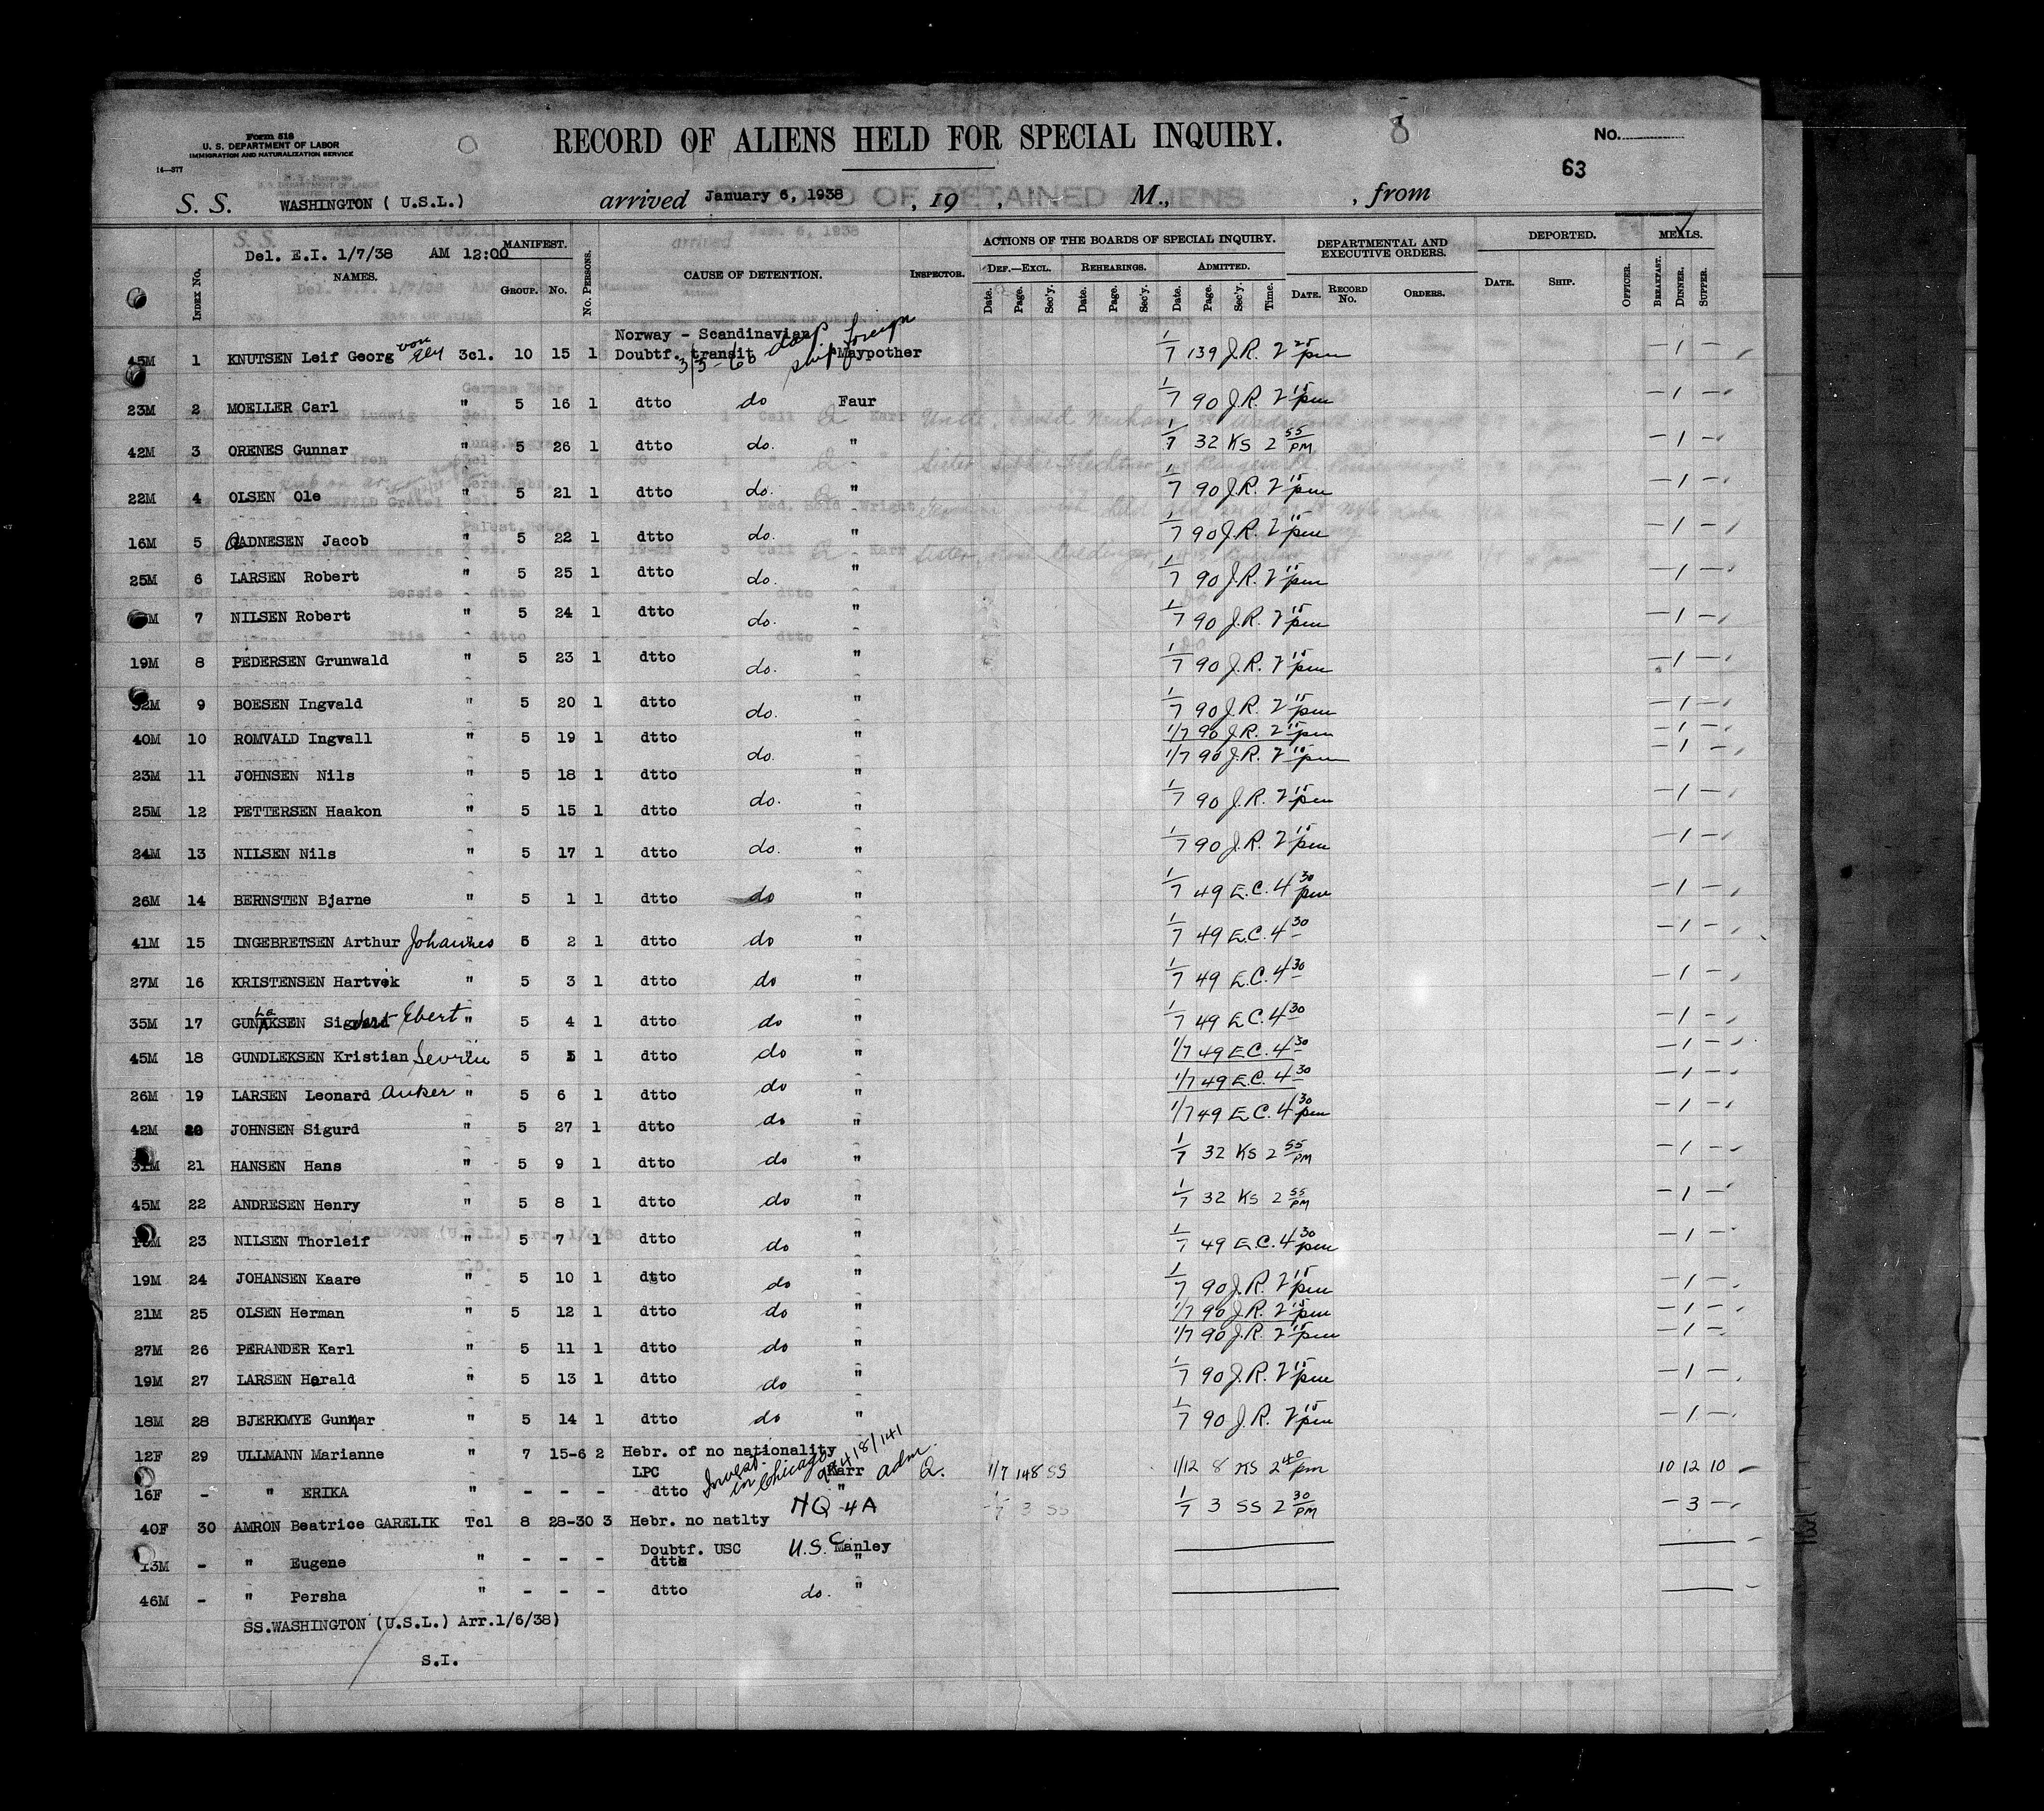 Form 518
U. S. DEPARTMENT OF LABOR
IMMIGRATION AND NATURALIZATION SERVICE
14—577
RECORD OF ALIENS HELD FOR SPECIAL INQUIRY.
8
No.
63
S. S. WASHINGTON ( U.S.L.) arrived January 6, 1938 , 19 , M., , from
Del. E.I. 1/7/38 AM 12:00
INDEX No. NAMES. MANIFEST. GROUP. No. No. PERSONS. CAUSE OF DETENTION. INSPECTOR. ACTIONS OF THE BOARDS OF SPECIAL INQUIRY. DEF.—EXCL. REHEARINGS. ADMITTED. DEPARTMENTAL AND EXECUTIVE ORDERS. DEPORTED. MEALS.
Date. Page. Sec'y. Date. Page. Sec'y. Date. Page. Sec'y. Time. DATE. RECORD No. ORDERS. DATE. SHIP. OFFICER. BREAKFAST. DINNER. SUPPER.
Norway - Scandinavian
45M 1 KNUTSEN Leif Georg von 3cl. 10 15 1 Doubtf. transit foreign Maypother 1/7 139 J.R. 2 25 pm — 1 —
23M 2 MOELLER Carl " 5 16 1 dtto do Faur 1/7 90 J.R. 2 15 pm — 1 —
42M 3 ORENES Gunnar " 5 26 1 dtto do. " 1/7 32 KS 2 55 PM — 1 —
22M 4 OLSEN Ole " 5 21 1 dtto do. " 1/7 90 J.R. 2 15 pm — 1 —
16M 5 AADNESEN Jacob " 5 22 1 dtto do. " 1/7 90 J.R. 2 15 pm — 1 —
25M 6 LARSEN Robert " 5 25 1 dtto do. " 1/7 90 J.R. 2 15 pm — 1 —
M 7 NILSEN Robert " 5 24 1 dtto do. " 1/7 90 J.R. 2 15 pm — 1 —
19M 8 PEDERSEN Grunwald " 5 23 1 dtto do. " 1/7 90 J.R. 2 15 pm — 1 —
32M 9 BOESEN Ingvald " 5 20 1 dtto do. " 1/7 90 J.R. 2 15 pm — 1 —
40M 10 ROMVALD Ingvall " 5 19 1 dtto " 1/7 90 J.R. 2 15 pm — 1 —
23M 11 JOHNSEN Nils " 5 18 1 dtto do. " 1/7 90 J.R. 2 15 pm — 1 —
25M 12 PETTERSEN Haakon " 5 15 1 dtto do. " 1/7 90 J.R. 2 15 pm — 1 —
24M 13 NILSEN Nils " 5 17 1 dtto do. " 1/7 90 J.R. 2 15 pm — 1 —
26M 14 BERNSTEN Bjarne " 5 1 1 dtto do " 1/7 49 E.C. 4 30 pm — 1 —
41M 15 INGEBRETSEN Arthur Johannes " 5 2 1 dtto do " 1/7 49 E.C. 4 30 — 1 —
27M 16 KRISTENSEN Hartvik " 5 3 1 dtto do " 1/7 49 E.C. 4 30 — 1 —
35M 17 Ebert " 5 4 1 dtto do " 1/7 49 E.C. 4 30 — 1 —
45M 18 GUNDLEKSEN Kristian " 5 5 1 dtto do " 1/7 49 E.C. 4 30 — 1 —
26M 19 LARSEN Leonard Anker " 5 6 1 dtto do " 1/7 49 E.C. 4 30 — 1 —
42M 20 JOHNSEN Sigurd " 5 27 1 dtto do " 1/7 49 E.C. 4 30 pm — 1 —
31M 21 HANSEN Hans " 5 9 1 dtto do " 1/7 32 KS 2 55 PM — 1 —
45M 22 ANDRESEN Henry " 5 8 1 dtto do " 1/7 32 KS 2 55 PM — 1 —
M 23 NILSEN Thorleif " 5 7 1 dtto do " 1/7 49 E.C. 4 30 pm — 1 —
19M 24 JOHANSEN Kaare " 5 10 1 dtto do " 1/7 90 J.R. 2 15 pm — 1 —
21M 25 OLSEN Herman " 5 12 1 dtto do " 1/7 90 J.R. 2 15 pm — 1 —
27M 26 PERANDER Karl " 5 11 1 dtto do " 1/7 90 J.R. 2 15 pm — 1 —
19M 27 LARSEN Harald " 5 13 1 dtto do " 1/7 90 J.R. 2 15 pm — 1 —
18M 28 BJERKMYE Gunnar " 5 14 1 dtto do " 1/7 90 J.R. 2 15 pm — 1 —
12F 29 ULLMANN Marianne " 7 15-6 2 Hebr. of no nationality
LPC Invest. in Chicago Karr adm. Q. 1/7 148 SS 1/12 8 KS 2 40 pm 10 12 10
16F - " ERIKA " - - - dtto "
HQ-4A 1/7 3 SS 1/7 3 SS 2 30 PM — 3 —
40F 30 AMRON Beatrice GARELIK Tcl 8 28-30 3 Hebr. no natlty
Doubtf. USC U.S.C. Manley
13M - " Eugene " - - - dtto "
46M - " Persha " - - - dtto do. "
SS.WASHINGTON (U.S.L.) Arr.1/6/38)
S.I.